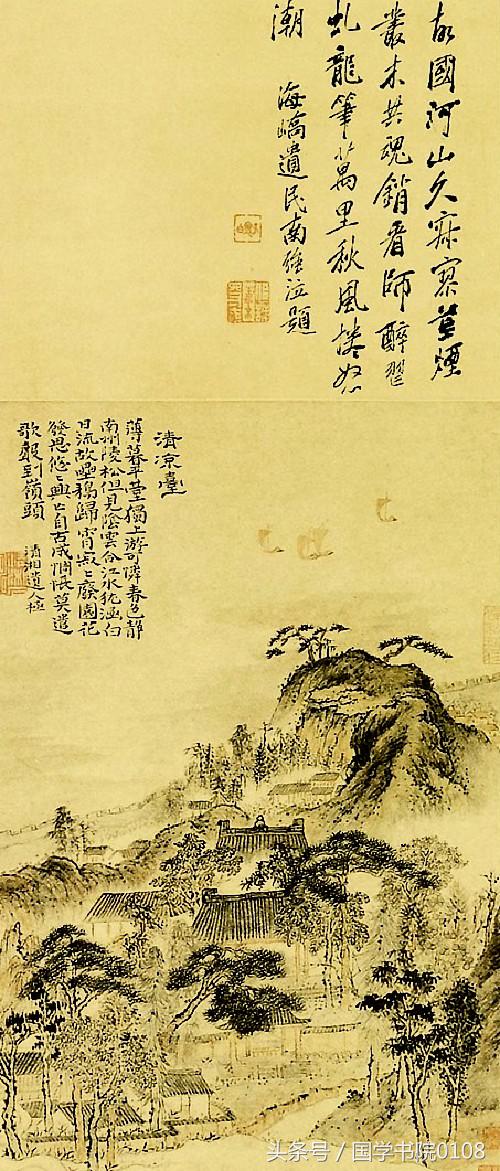 故國河山久寂寥草煙
叢木共魂銷看師醉墨
虬龍筆萬里秋風捲怒
潮
海嶠遺民南雍泣題
清凉臺
薄暮平臺獨上游可憐春色靜
南州陵松但見陰雲合江水犹涵白
日流故壘鴉歸宵寂〻廢園花
發思悠〻興亡自古成惆悵莫遣
歌聲到嶺頭
清湘遺人極
头条号 / 国学书院0108